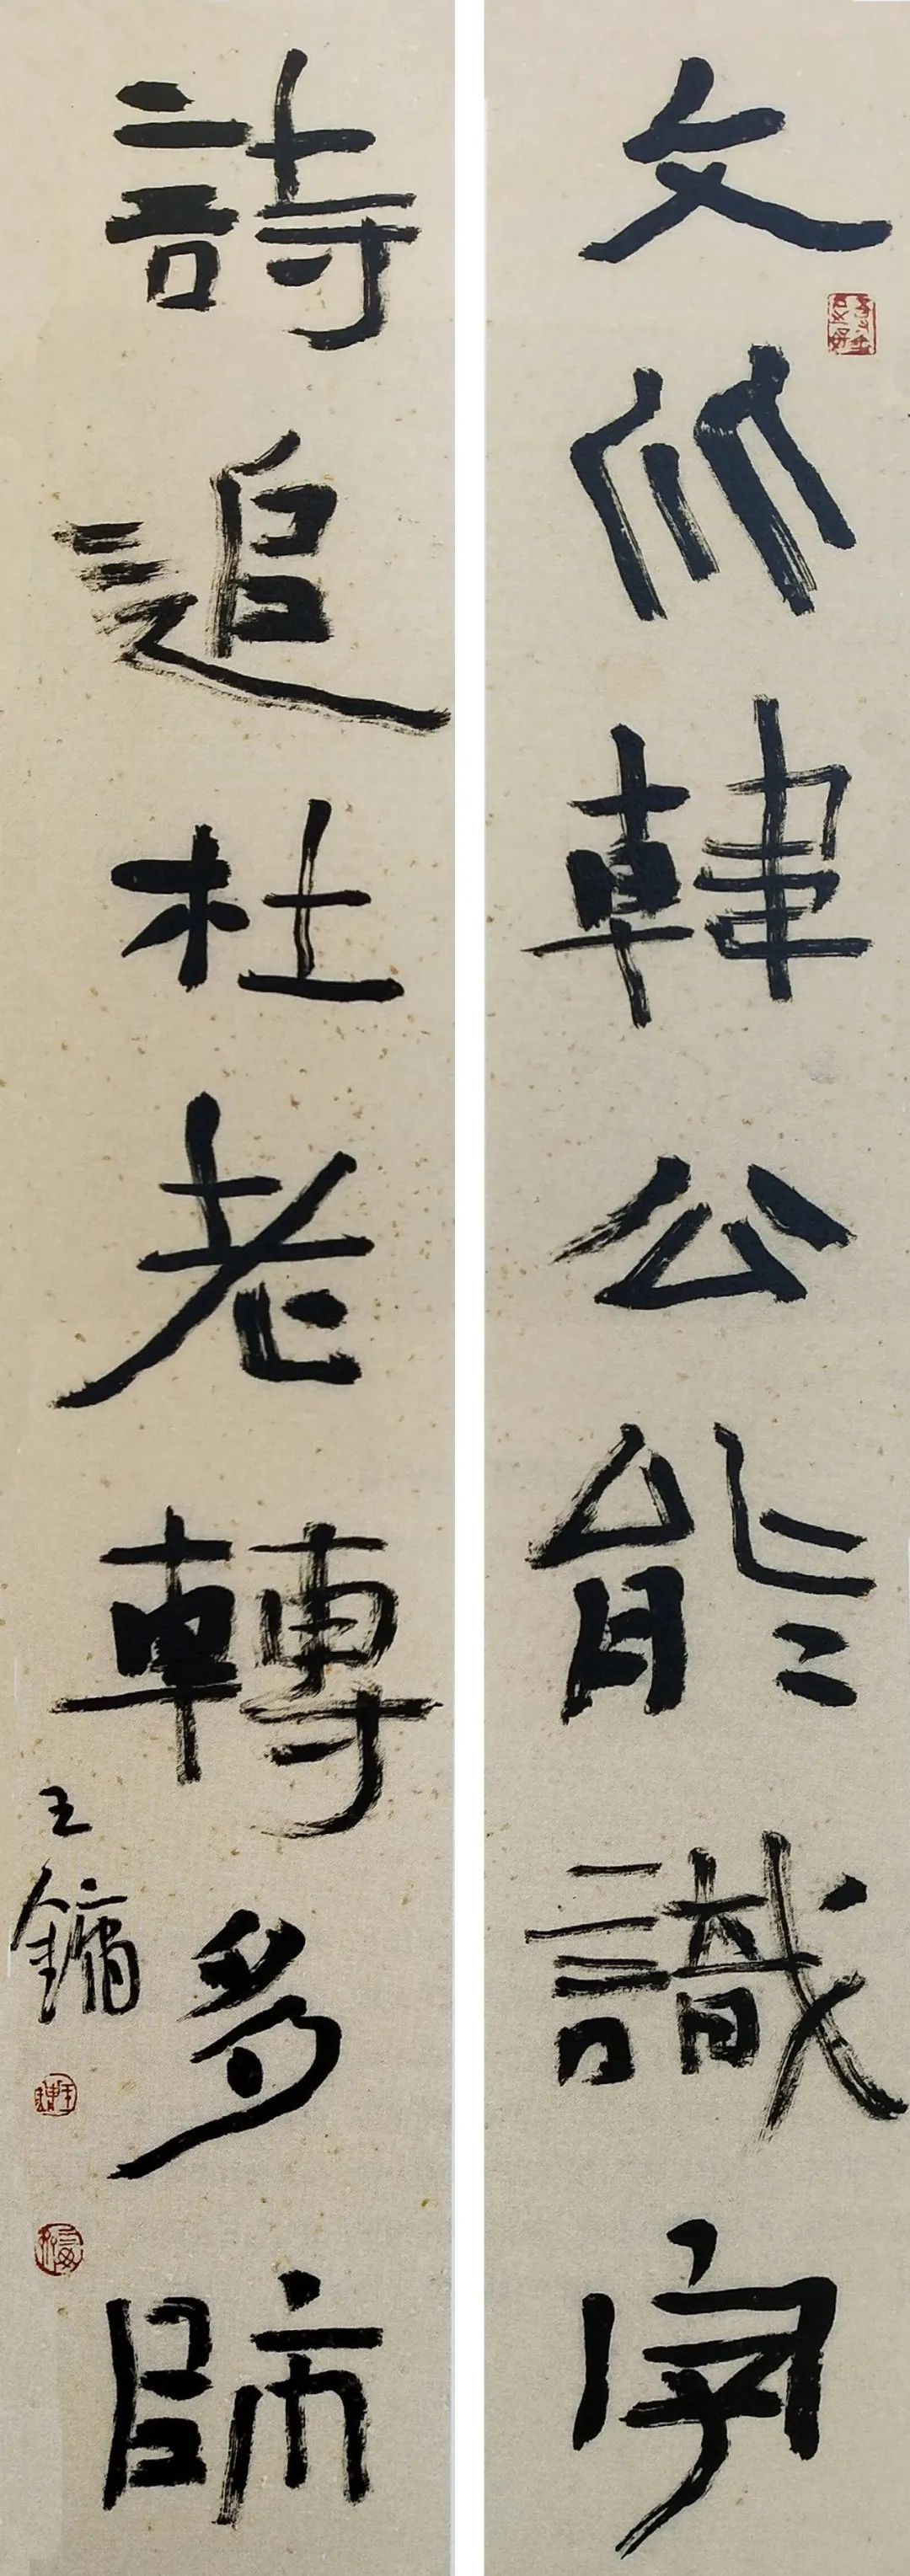 文似韓公能識字
詩追杜老轉多師
王鏞